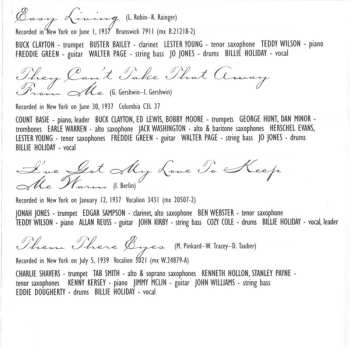 Easy Living (L. Robin-R. Rainger)
Recorded in New York on June 1, 1937 Brunswick 7911 (mx B.21218-2)
BUCK CLAYTON - trumpet BUSTER BAILEY - clarinet LESTER YOUNG - tenor saxophone TEDDY WILSON - piano
FREDDIE GREEN - guitar WALTER PAGE - string bass JO JONES - drums BILLIE HOLIDAY - vocal
They Can't Take That Away
From Me (G. Gershwin-I. Gershwin)
Recorded in New York on June 30, 1937 Columbia CJL 37
COUNT BASIE - piano, leader BUCK CLAYTON, ED LEWIS, BOBBY MOORE - trumpets GEORGE HUNT, DAN MINOR -
trombones EARLE WARREN - alto saxophone JACK WASHINGTON - alto & baritone saxophones HERSCHEL EVANS,
LESTER YOUNG - tenor saxophones FREDDIE GREEN - guitar WALTER PAGE - string bass JO JONES - drums
BILLIE HOLIDAY - vocal
I've Got My Love To Keep
Me Warm (I. Berlin)
Recorded in New York on January 12, 1937 Vocalion 3431 (mx 20507-2)
JONAH JONES - trumpet EDGAR SAMPSON - clarinet, alto saxophone BEN WEBSTER - tenor saxophone
TEDDY WILSON - piano ALLAN REUSS - guitar JOHN KIRBY - string bass COZY COLE - drums BILLIE HOLIDAY - vocal, leader
Them There Eyes (M. Pinkard-W. Tracey-D. Tauber)
Recorded in New York on July 5, 1939 Vocalion 5021 (mx W.24879-A)
CHARLIE SHAVERS - trumpet TAB SMITH - alto & soprano saxophones KENNETH HOLLON, STANLEY PAYNE -
tenor saxophones KENNY KERSEY - piano JIMMY MCLIN - guitar JOHN WILLIAMS - string bass
EDDIE DOUGHERTY - drums BILLIE HOLIDAY - vocal